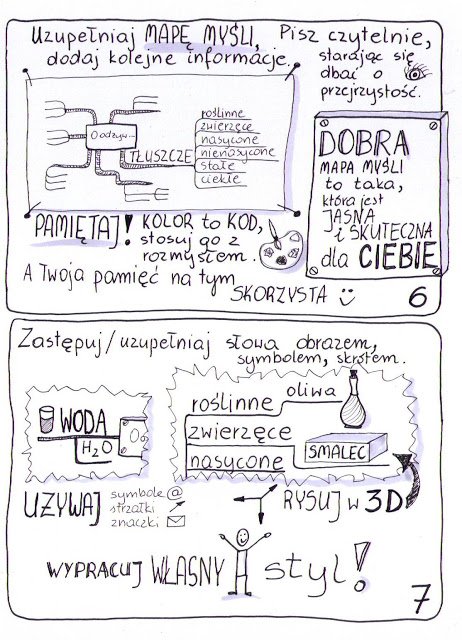 Uzupełniaj MAPĘ MYŚLI,
dodaj kolejne informacje.
Pisz czytelnie,
starając się
dbać o
przejrzystość.
O odżyw...
TŁUSZCZE
roślinne
zwierzęce
nasycone
nienasycone
stałe
ciekłe
DOBRA
MAPA MYŚLI
to taka,
która jest
JASNA
i SKUTECZNA
dla CIEBIE
PAMIĘTAJ! KOLOR to KOD,
stosuj go z
rozmysłem.
A Twoja pamięć na tym
SKORZYSTA
6
Zastępuj/uzupełniaj słowa obrazem,
symbolem, skrótem.
WODA
H2O
O o
roślinne
oliwa
zwierzęce
SMALEC
nasycone
UŻYWAJ
symbole @
strzałki
znaczki
RYSUJ w 3D
WYPRACUJ WŁASNY styl!
7